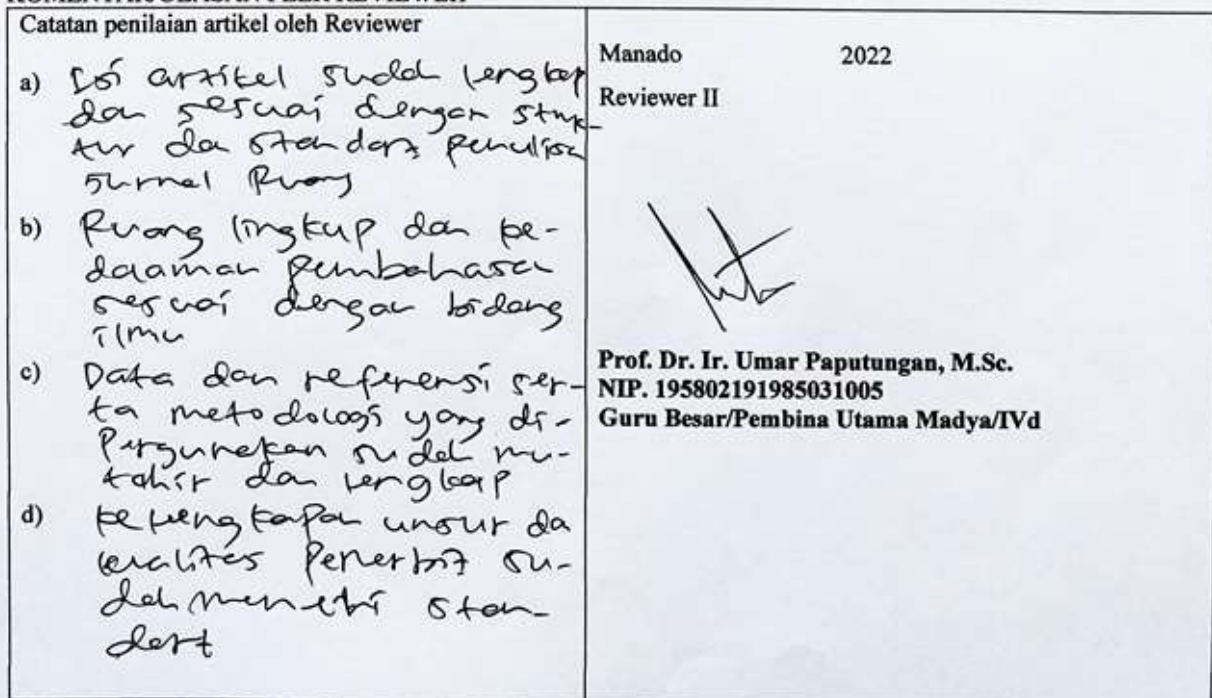 KOMENTAR/ULASAN PEER REVIEWER
Catatan penilaian artikel oleh Reviewer
a) Isi artikel sudah lengkap
dan sesuai dengan struk-
tur dan standart penulisan
Jurnal Ruang
b) Ruang lingkup dan ke-
dalaman pembahasan
sesuai dengan bidang
ilmu
c) Data dan referensi ser-
ta metodologi yang di-
pergunakan sudah mu-
tahir dan lengkap
d) kelengkapan unsur dan
kualitas Penerbit su-
dah memenuhi stan-
dart
Manado 2022
Reviewer II
Prof. Dr. Ir. Umar Paputungan, M.Sc.
NIP. 195802191985031005
Guru Besar/Pembina Utama Madya/IVd